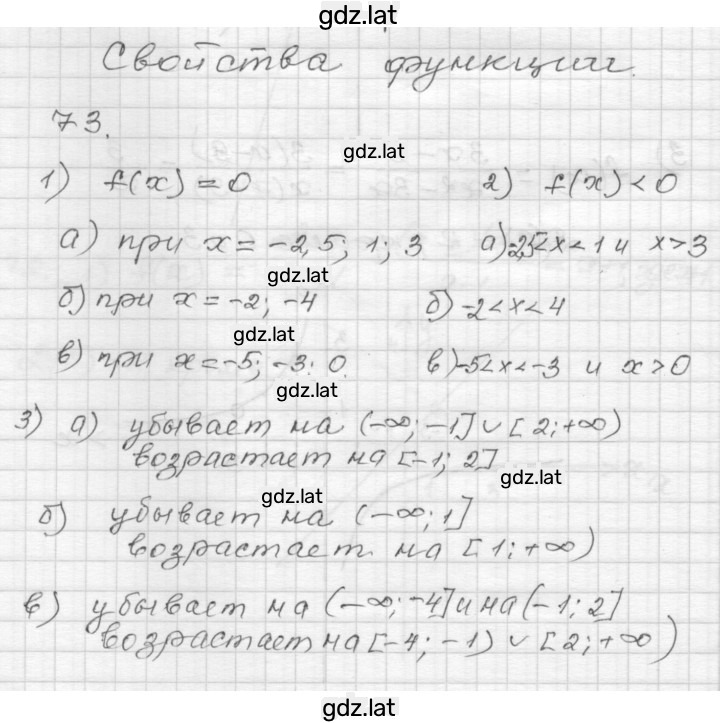 gdz.lat
Свойства функции.
73.
gdz.lat
1) f(x) = 0 2) f(x) < 0
а) при x = -2,5; 1; 3 а) -2,5 < x < 1 и x > 3
gdz.lat
б) при x = -2; -4 б) -2 < x < 4
gdz.lat
в) при x = -5; -3; 0. в) -5 < x < -3 и x > 0
gdz.lat
3) а) убывает на (-∞; -1] ∪ [2; +∞)
возрастает на [-1; 2]
gdz.lat
gdz.lat
б) убывает на (-∞; 1]
возрастает на [1; +∞)
gdz.lat
в) убывает на (-∞; -4] и на (-1; 2]
возрастает на [-4; -1) ∪ [2; +∞)
gdz.lat